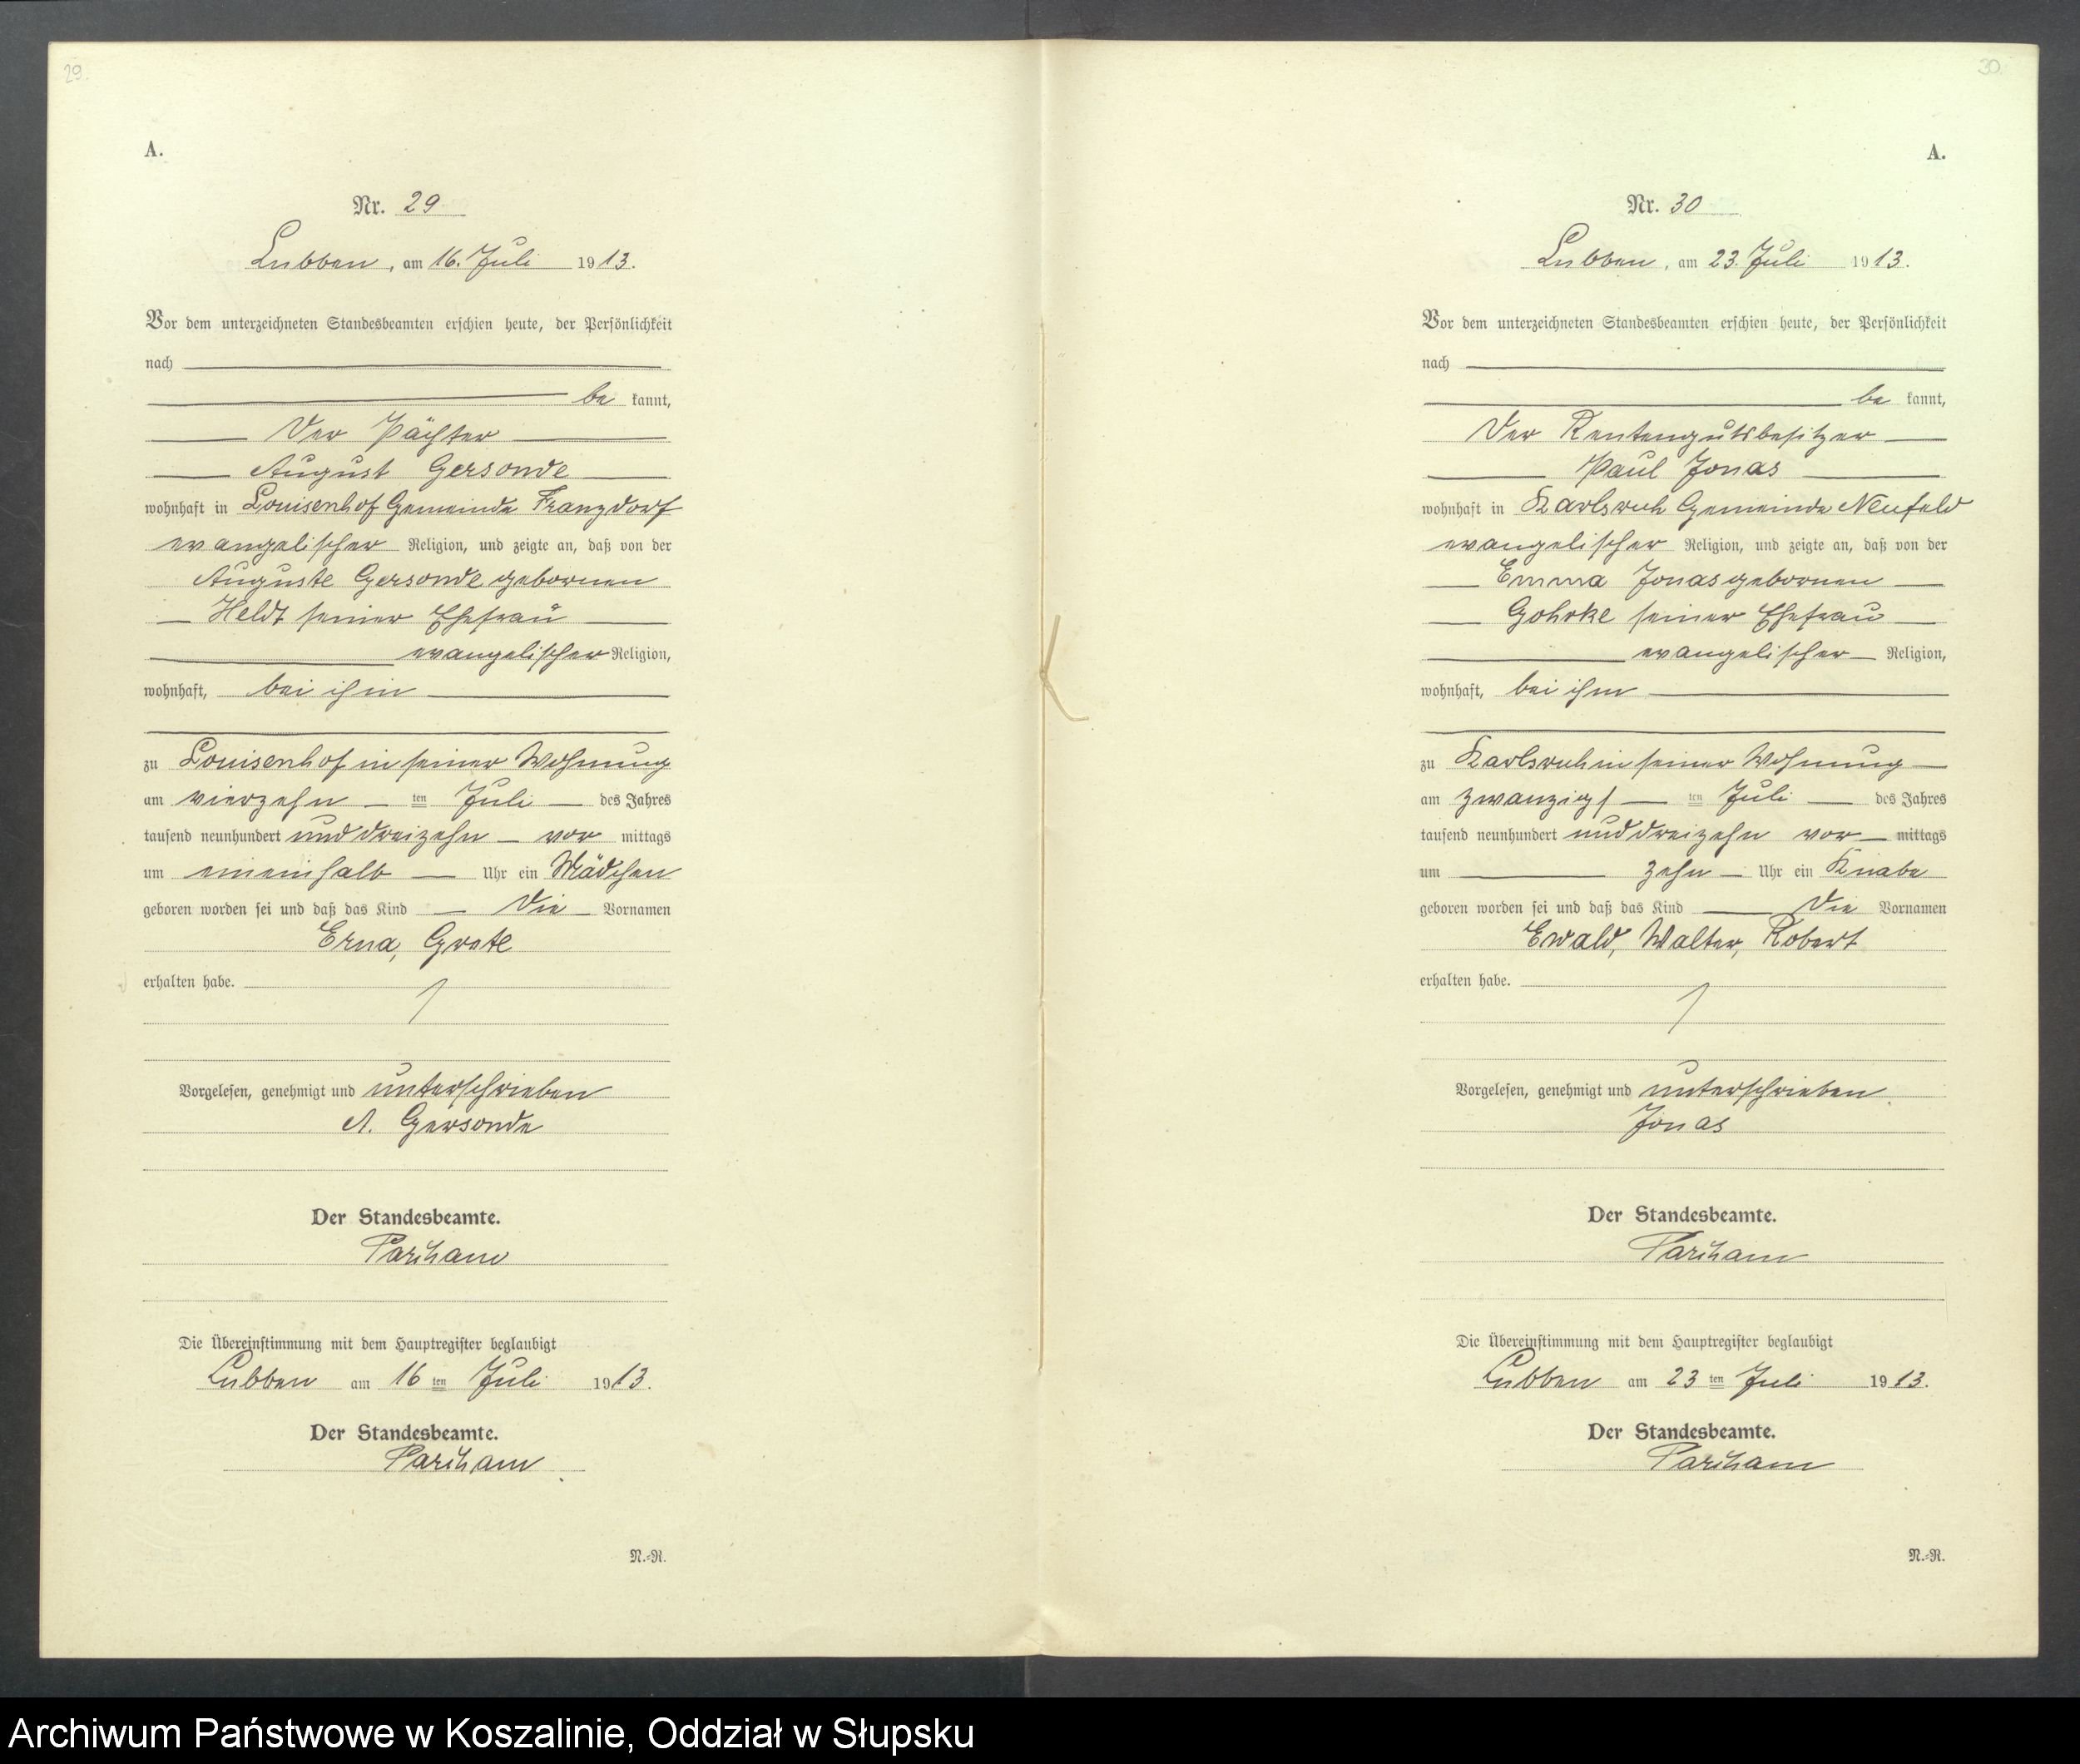 29.
A.
Nr. 29
Lubben, am 16. Juli 1913.
Vor dem unterzeichneten Standesbeamten erschien heute, der Persönlichkeit
nach
be kannt,
der Pächter
August Gersonde
wohnhaft in Louisenhof Gemeinde Franzdorf
evangelischer Religion, und zeigte an, daß von der
Auguste Gersonde gebornen
Heldt seiner Ehefrau
evangelischer Religion,
wohnhaft, bei ihm
zu Louisenhof in seiner Wohnung
am vierzehn ten Juli des Jahres
tausend neunhundert und dreizehn vor mittags
um eineinhalb Uhr ein Mädchen
geboren worden sei und daß das Kind die Vornamen
Erna, Grete
erhalten habe.
Vorgelesen, genehmigt und unterschrieben
A. Gersonde
Der Standesbeamte.
Die Übereinstimmung mit dem Hauptregister beglaubigt
Lubben am 16 ten Juli 1913.
Der Standesbeamte.
N.=R.
30.
A.
Nr. 30
Lubben, am 23. Juli 1913.
Vor dem unterzeichneten Standesbeamten erschien heute, der Persönlichkeit
nach
be kannt,
der Rentengutsbesitzer
Paul Jonas
wohnhaft in Karlsruh Gemeinde Neufeld
evangelischer Religion, und zeigte an, daß von der
Emma Jonas gebornen
Gohrke seiner Ehefrau
evangelischer Religion,
wohnhaft, bei ihm
zu Karlsruh in seiner Wohnung
am zwanzigs ten Juli des Jahres
tausend neunhundert und dreizehn vor mittags
um zehn Uhr ein Knabe
geboren worden sei und daß das Kind die Vornamen
Ewald, Walter, Robert
erhalten habe.
Vorgelesen, genehmigt und unterschrieben
Jonas
Der Standesbeamte.
Die Übereinstimmung mit dem Hauptregister beglaubigt
Lubben am 23 ten Juli 1913.
Der Standesbeamte.
N.=R.
Archiwum Państwowe w Koszalinie, Oddział w Słupsku